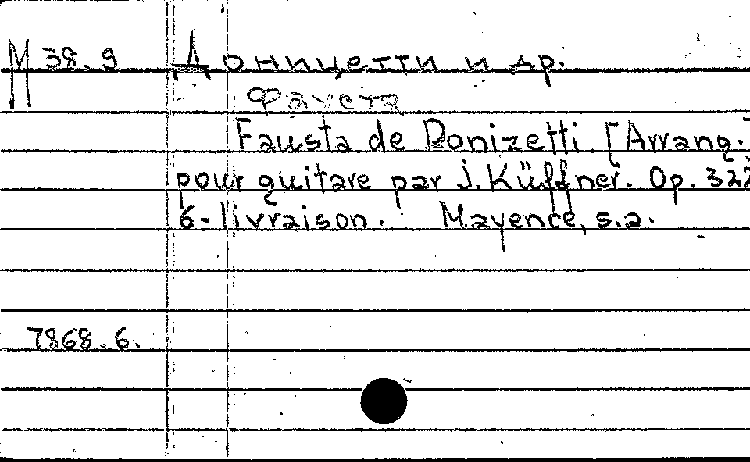 М 38.9 Доницетти и др.
Фауста
Fausta de Donizetti. [Arrang.]
pour guitare par J. Küffner. Op. 322
6-livraison. Mayence, s.a.
7868.6.